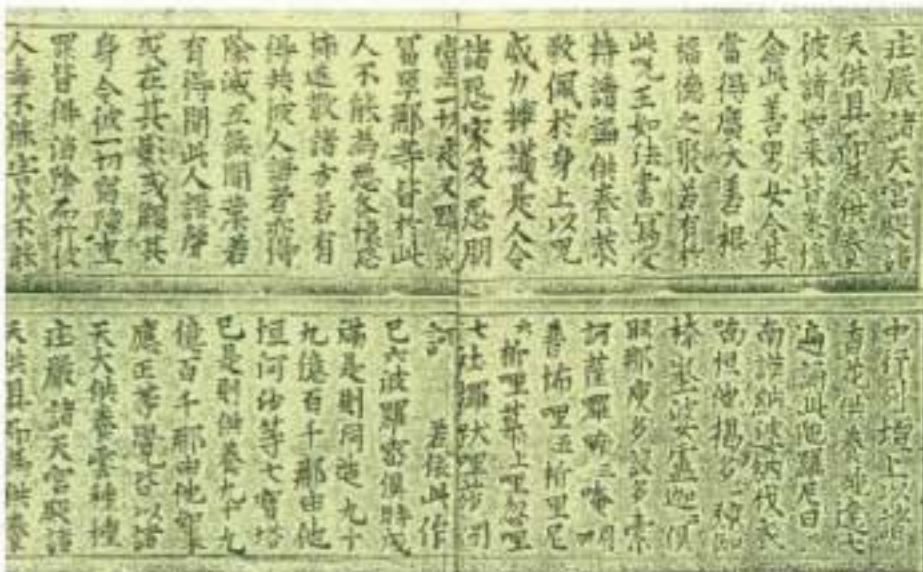 庄嚴諸天宮殿諸
天供具而爲供養
彼諸如來皆來憶
念此善男女令其
當得廣大善根
福德之聚若有於
此咒王如法書寫受
持讀誦供養恭
敬佩於身上以咒
威力擁護是人令
諸怨家及怨朋
黨一切夜叉羅剎
富單那等皆於此
人不能爲惡各懷恐
怖逃散諸方若有
得共彼人語者亦得
除滅五無間業若
有得聞此人語聲
或在其影或觸其
身令彼一切宿障重
罪皆得消除
人毒不能害火不能
中行列壇上以諸
香花供養遶七
遍誦此陀羅尼曰
南謨納婆納伐底
喃怛他揭多
訶薩羅喃三
七
訶 若依此作
已六波羅蜜俱時成
滿是則同造九十
九億百千那由他
恒河沙等七寶塔
已是則供養九十九
億百千那由他如來
應正等覺皆以諸
天大供養雲種種
庄嚴諸天宮殿諸
天供具而爲供養